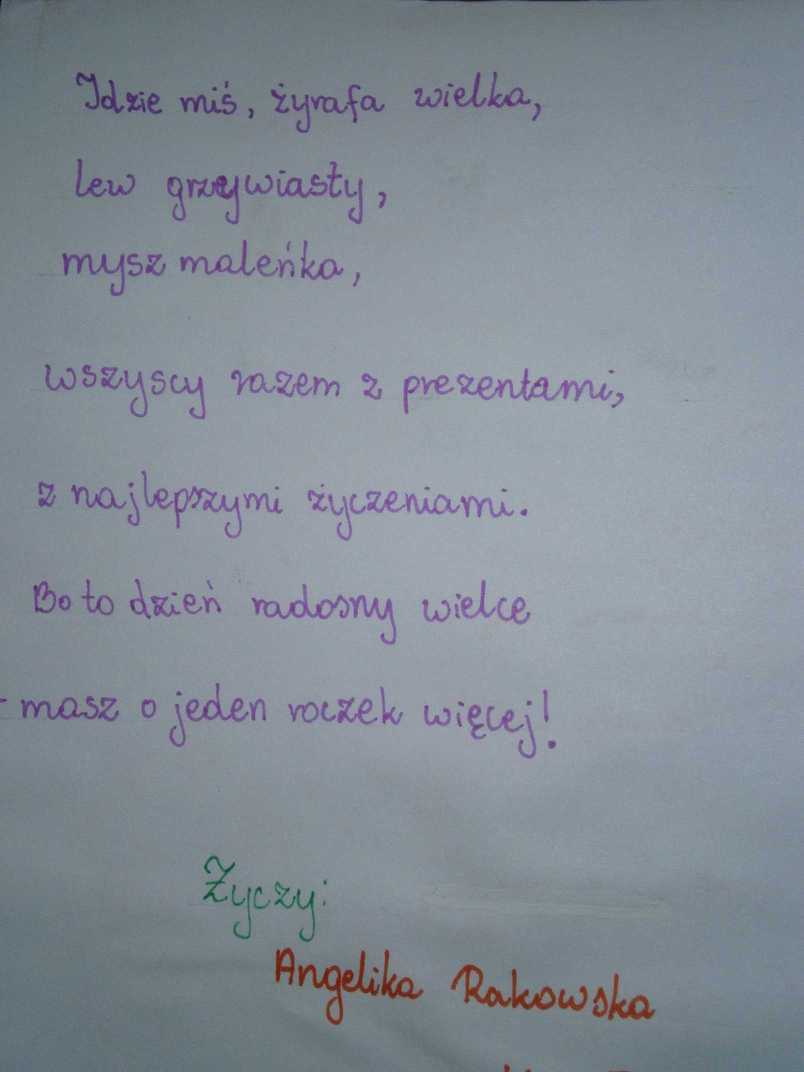 Idzie miś, żyrafa wielka,
lew grzywiasty,
mysz maleńka,
wszyscy razem z prezentami,
z najlepszymi życzeniami.
Bo to dzień radosny wielce
- masz o jeden roczek więcej!
Życzy:
Angelika Rakowska